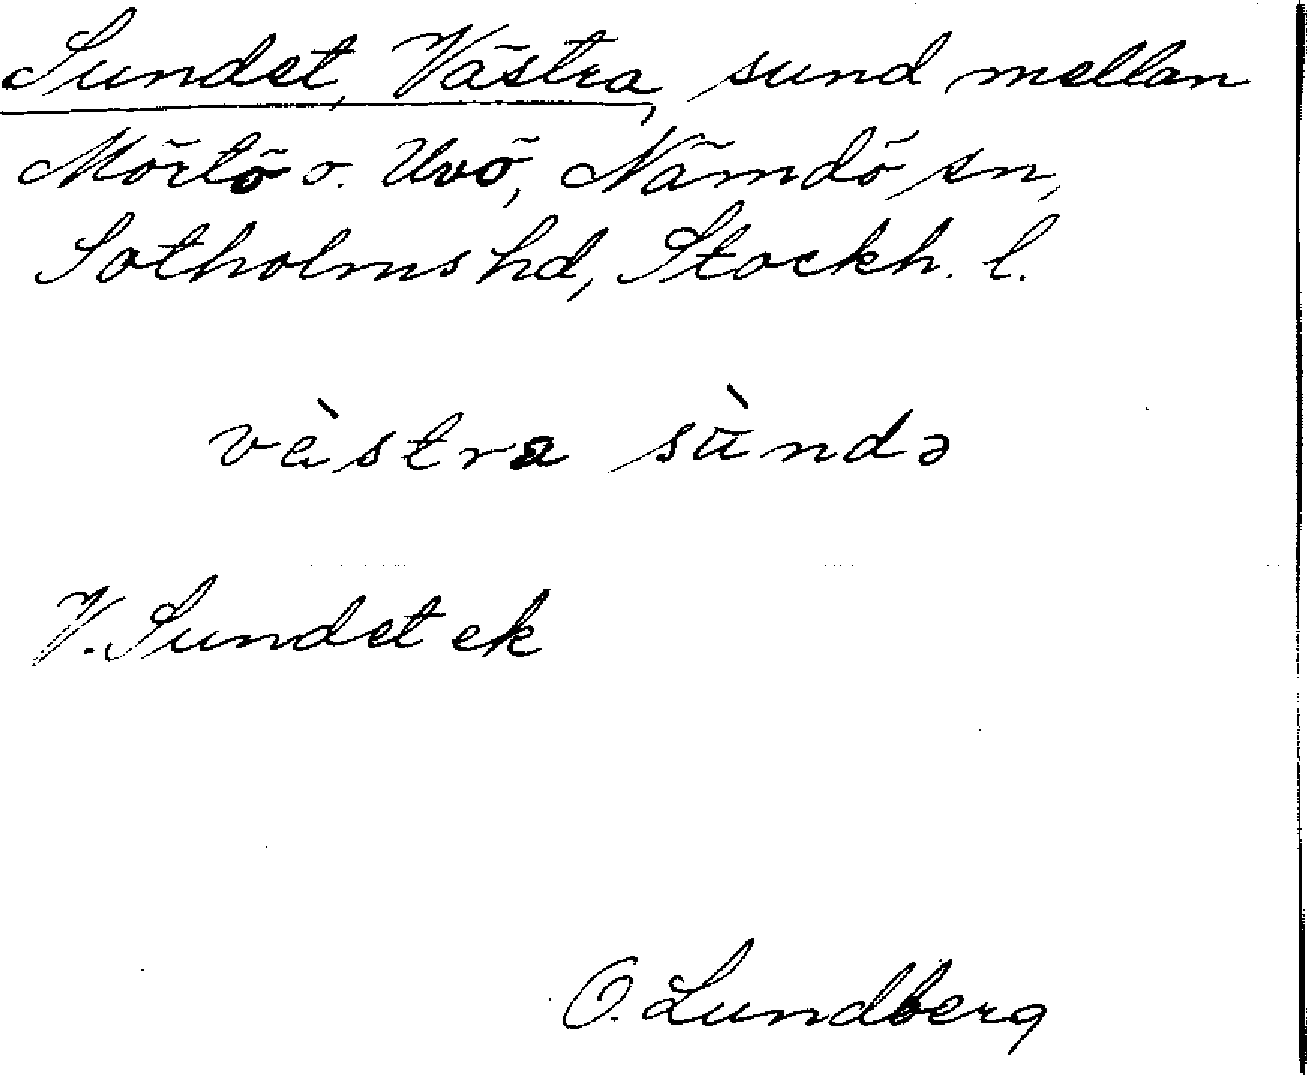 Sundet, Västra, sund mellan
Mörtö o. Uvö, Nämdö sn,
Sotholms hd, Stockh. l.
vàstra sùndə
V. Sundet ek
O. Lundberg